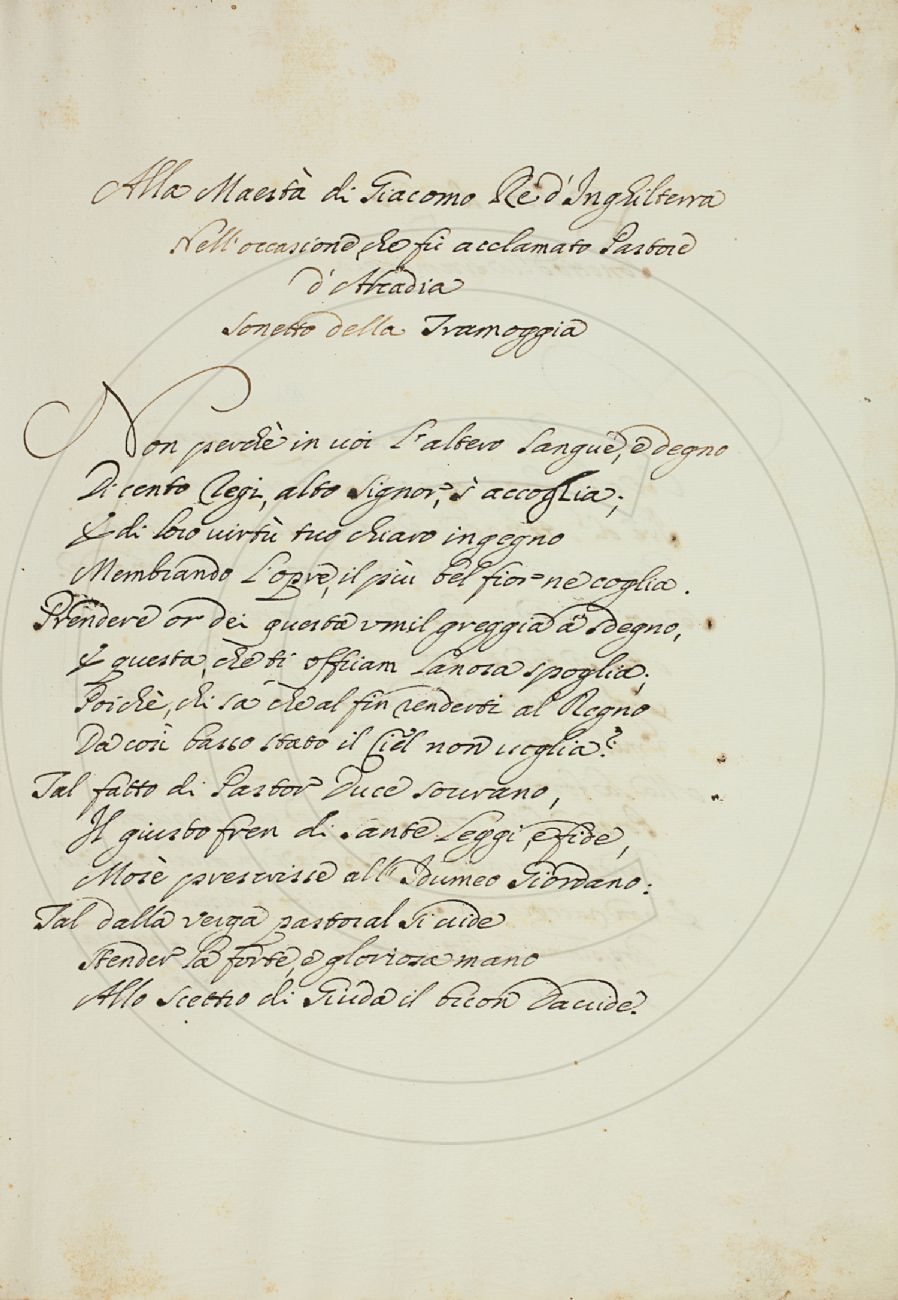 Alla Maestà di Giacomo Rè d'Inghilterra
Nell'occasione, che fù acclamato Pastore
d'Arcadia
Sonetto della Tramoggia
Non perchè in voi l'altero Sangue, e degno
Di cento Regi, alto Signor, s'accoglia;
E di loro virtù tuo chiaro ingegno
Membrando l'opre, il più bel fior ne coglia.
Prendere or dei questa vmil greggia à sdegno,
E questa, che ti offriam Lanosa spoglia;
Poichè, chi sà che al fin renderti al Regno
Da così basso stato il Ciel non uoglia?
Tal fatto di Pastor Duce sourano,
Il giusto fren di sante Leggi, e fide,
Mosè prescrisse all'Idumeo Giordano:
Tal dalla verga pastoral si uide
Stender la forte, e gloriosa mano
Allo scettro di Giuda il buon Dauide.